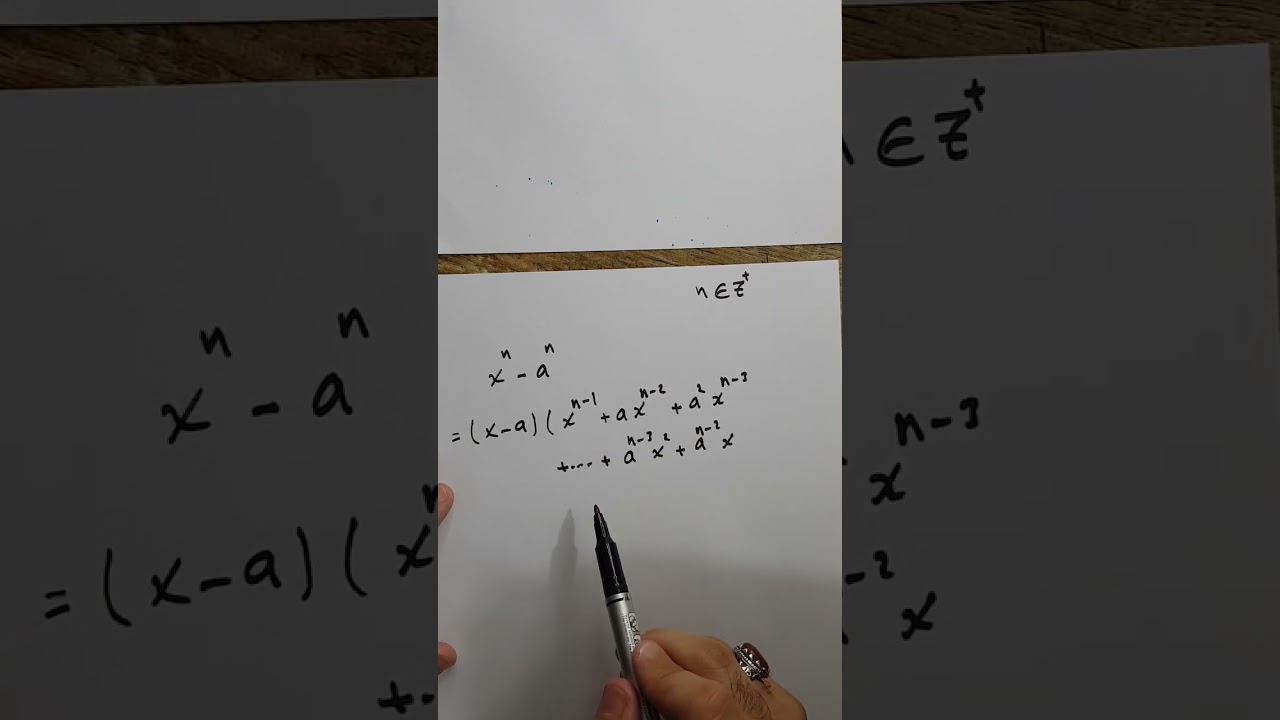 n ∈ Z⁺
xⁿ - aⁿ
= (x-a)(xⁿ⁻¹ + axⁿ⁻² + a²xⁿ⁻³
+... + aⁿ⁻³x² + aⁿ⁻²x